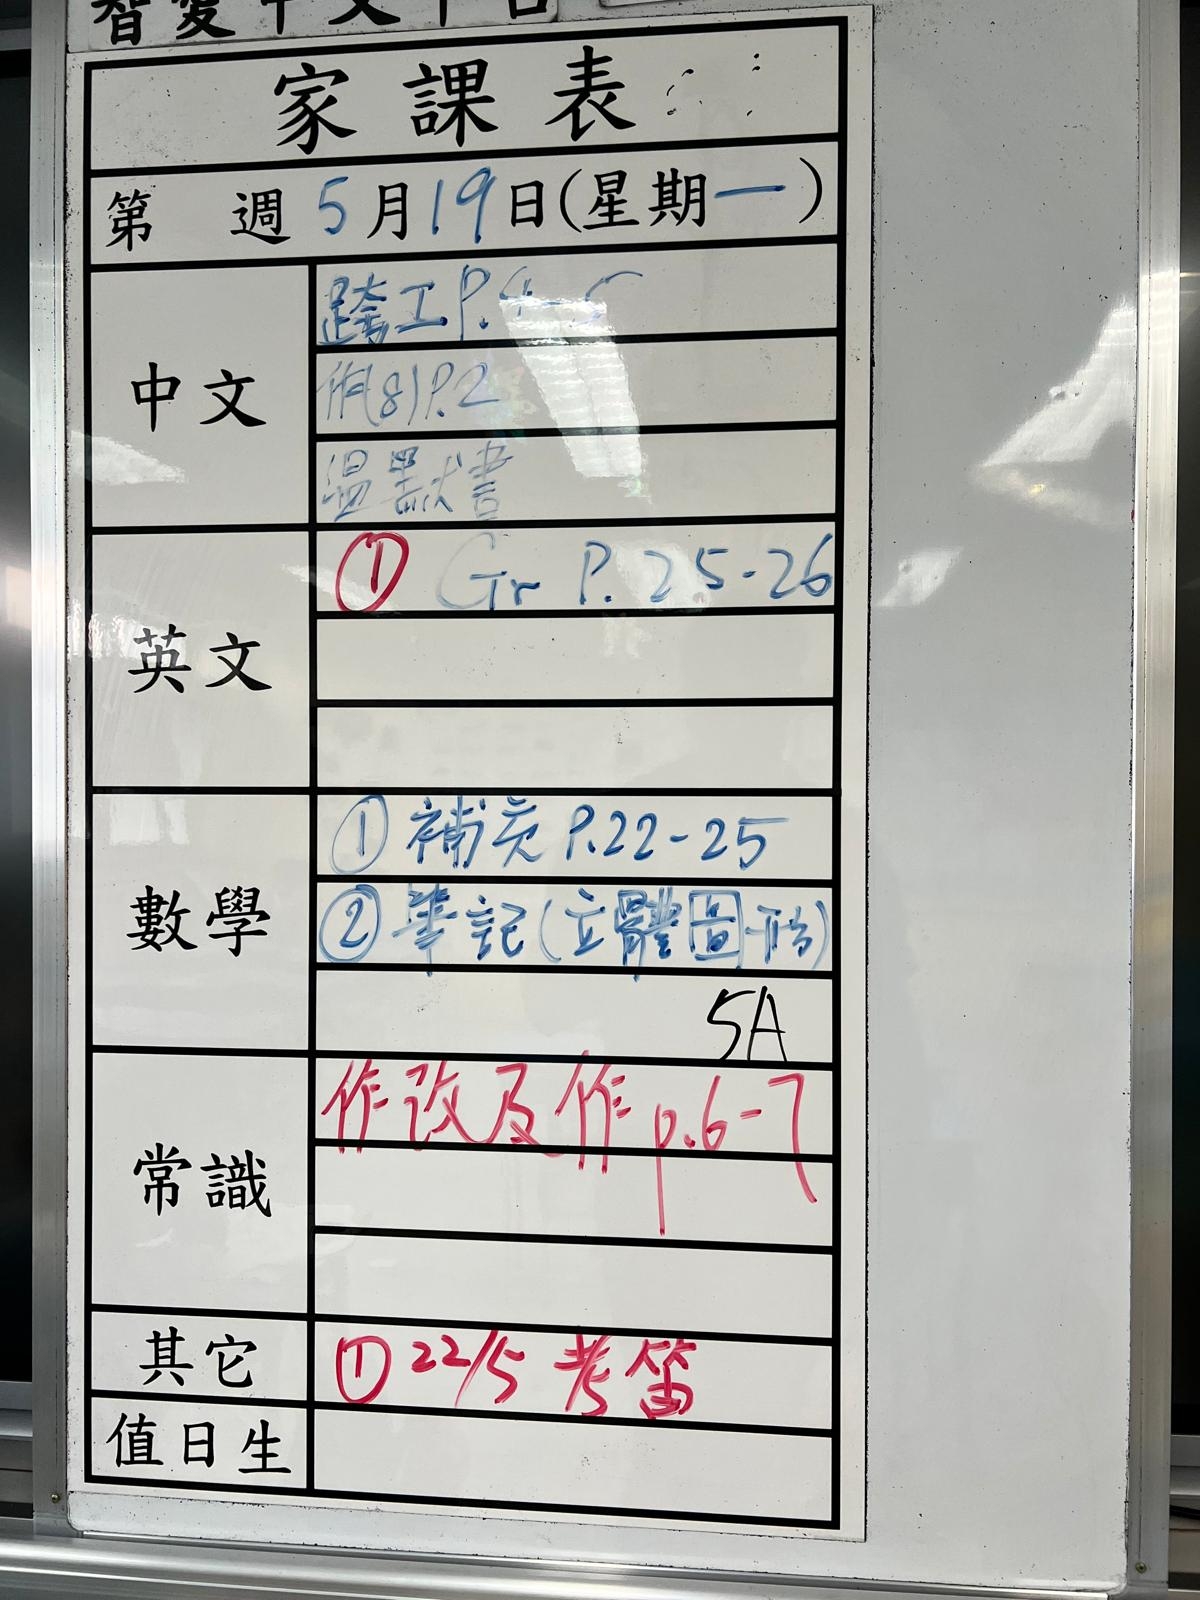 家課表
第 週 5月19日(星期一)
中文
跨工P.4-5
作(8)P.2
溫默書
英文
① Gr P.25-26
數學
① 補充 P.22-25
② 筆記(立體圖形)
5A
常識
作改及作 p.6-7
其它
① 22/5 考笛
值日生